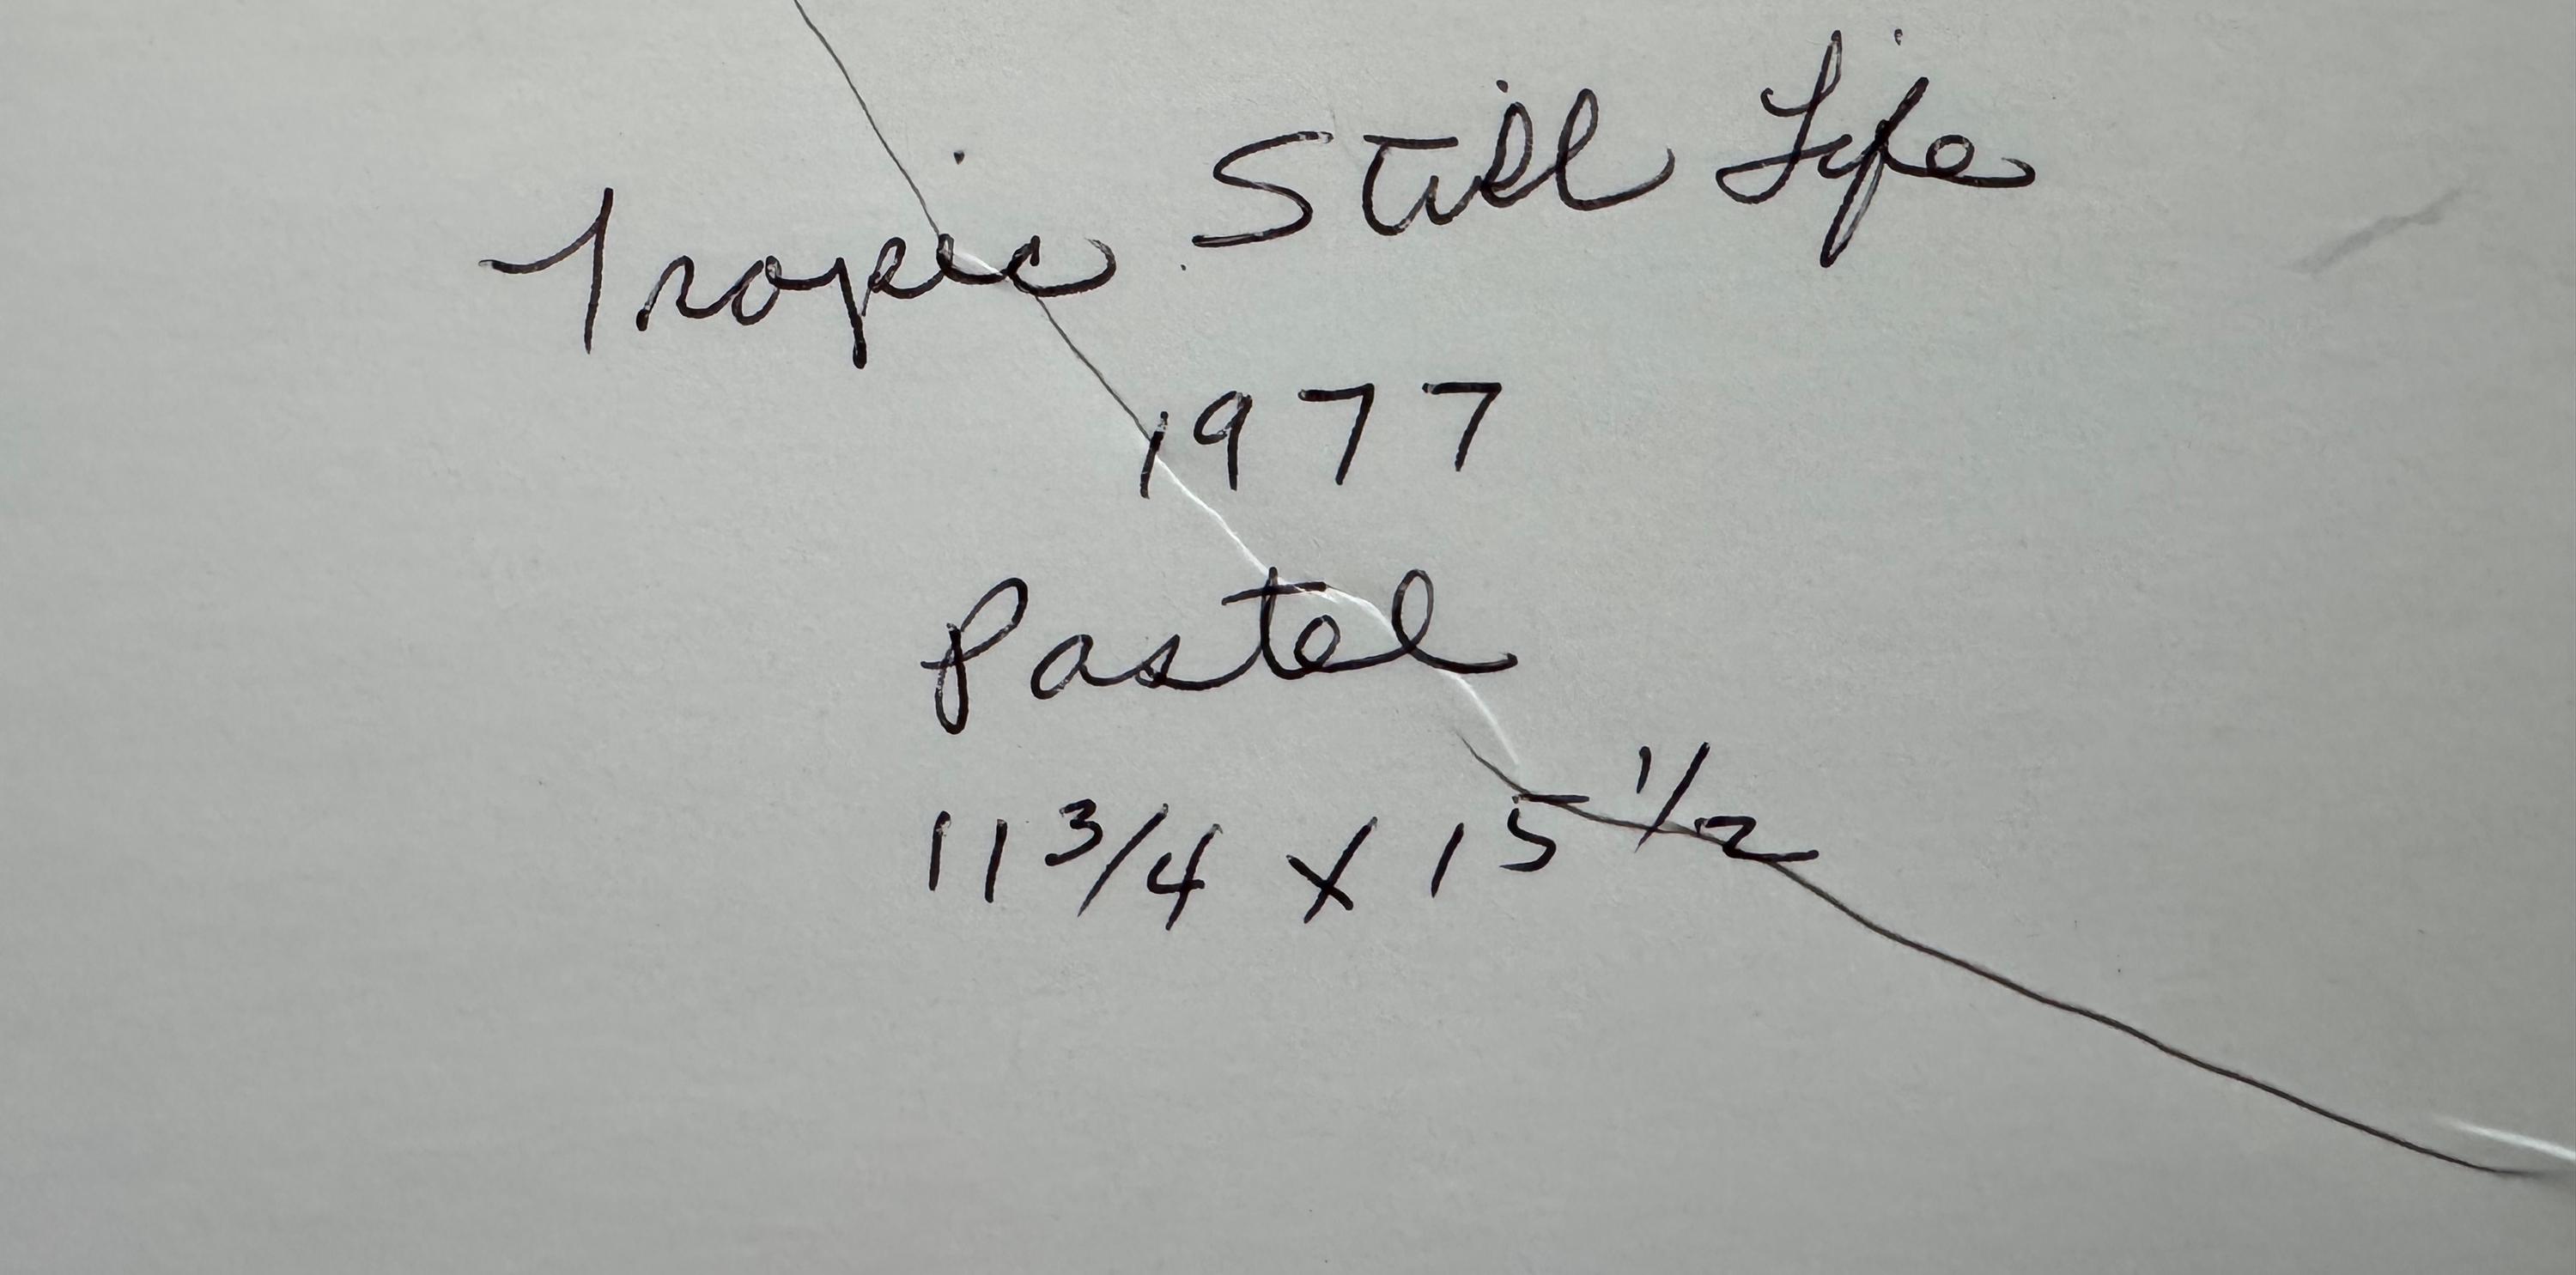 Tropic Still Life
1977
Pastel
11 3/4 x 15 1/2